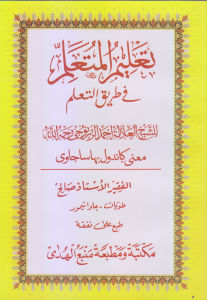 تعليم المتعلم
في طريق التعلم
للشيخ العلامة أحمد الزرنوجي رحمه الله
معنى كاندول بهاسا جاوى
الفقير الأستاذ صالح
جاوا تيمور
طبع على نفقة
مكتبة ومطبعة منبع الهدى